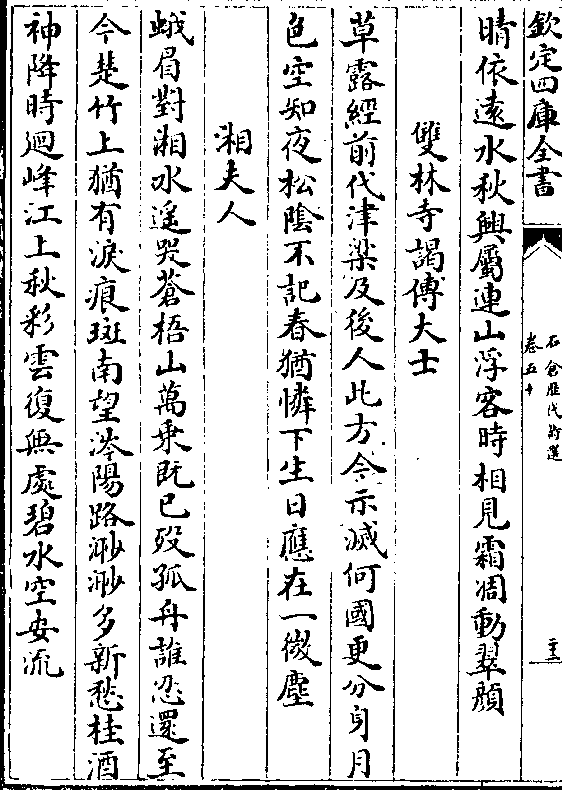 欽定四庫全書
石倉歷代詩選
卷五十
二十三
晴依遠水秋興屬連山浮客時相見霜凋動翠顔
雙林寺謁傅大士
草露經前代津梁及後人此方今示滅何國更分身月
色空知夜松陰不記春猶憐下生日應在一微塵
湘夫人
蛾眉對湘水遙哭蒼梧山萬乗既已殁孤舟誰忍還至
今楚竹上猶有淚痕斑南望涔陽路渺渺多新愁桂酒
神降時廻峰江上秋彩雲復無處碧水空安流